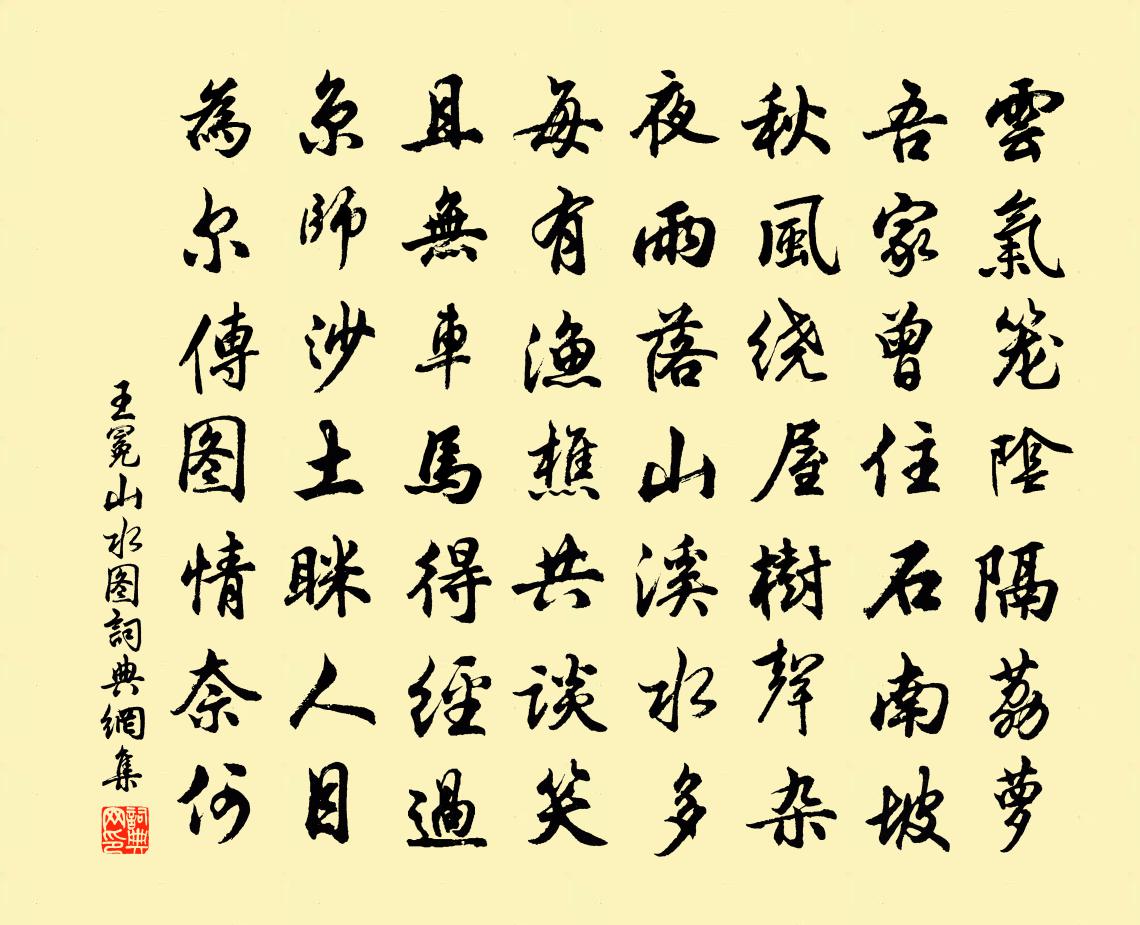 雲氣笼陰隔荔萝
吾家曾住石南坡
秋風绕屋樹聲杂
夜雨落山溪水多
每有漁樵共谈笑
且無車馬得經過
京師沙土眯人目
為尔傳图情奈何
王冕山水图詞典網集
詞典网印